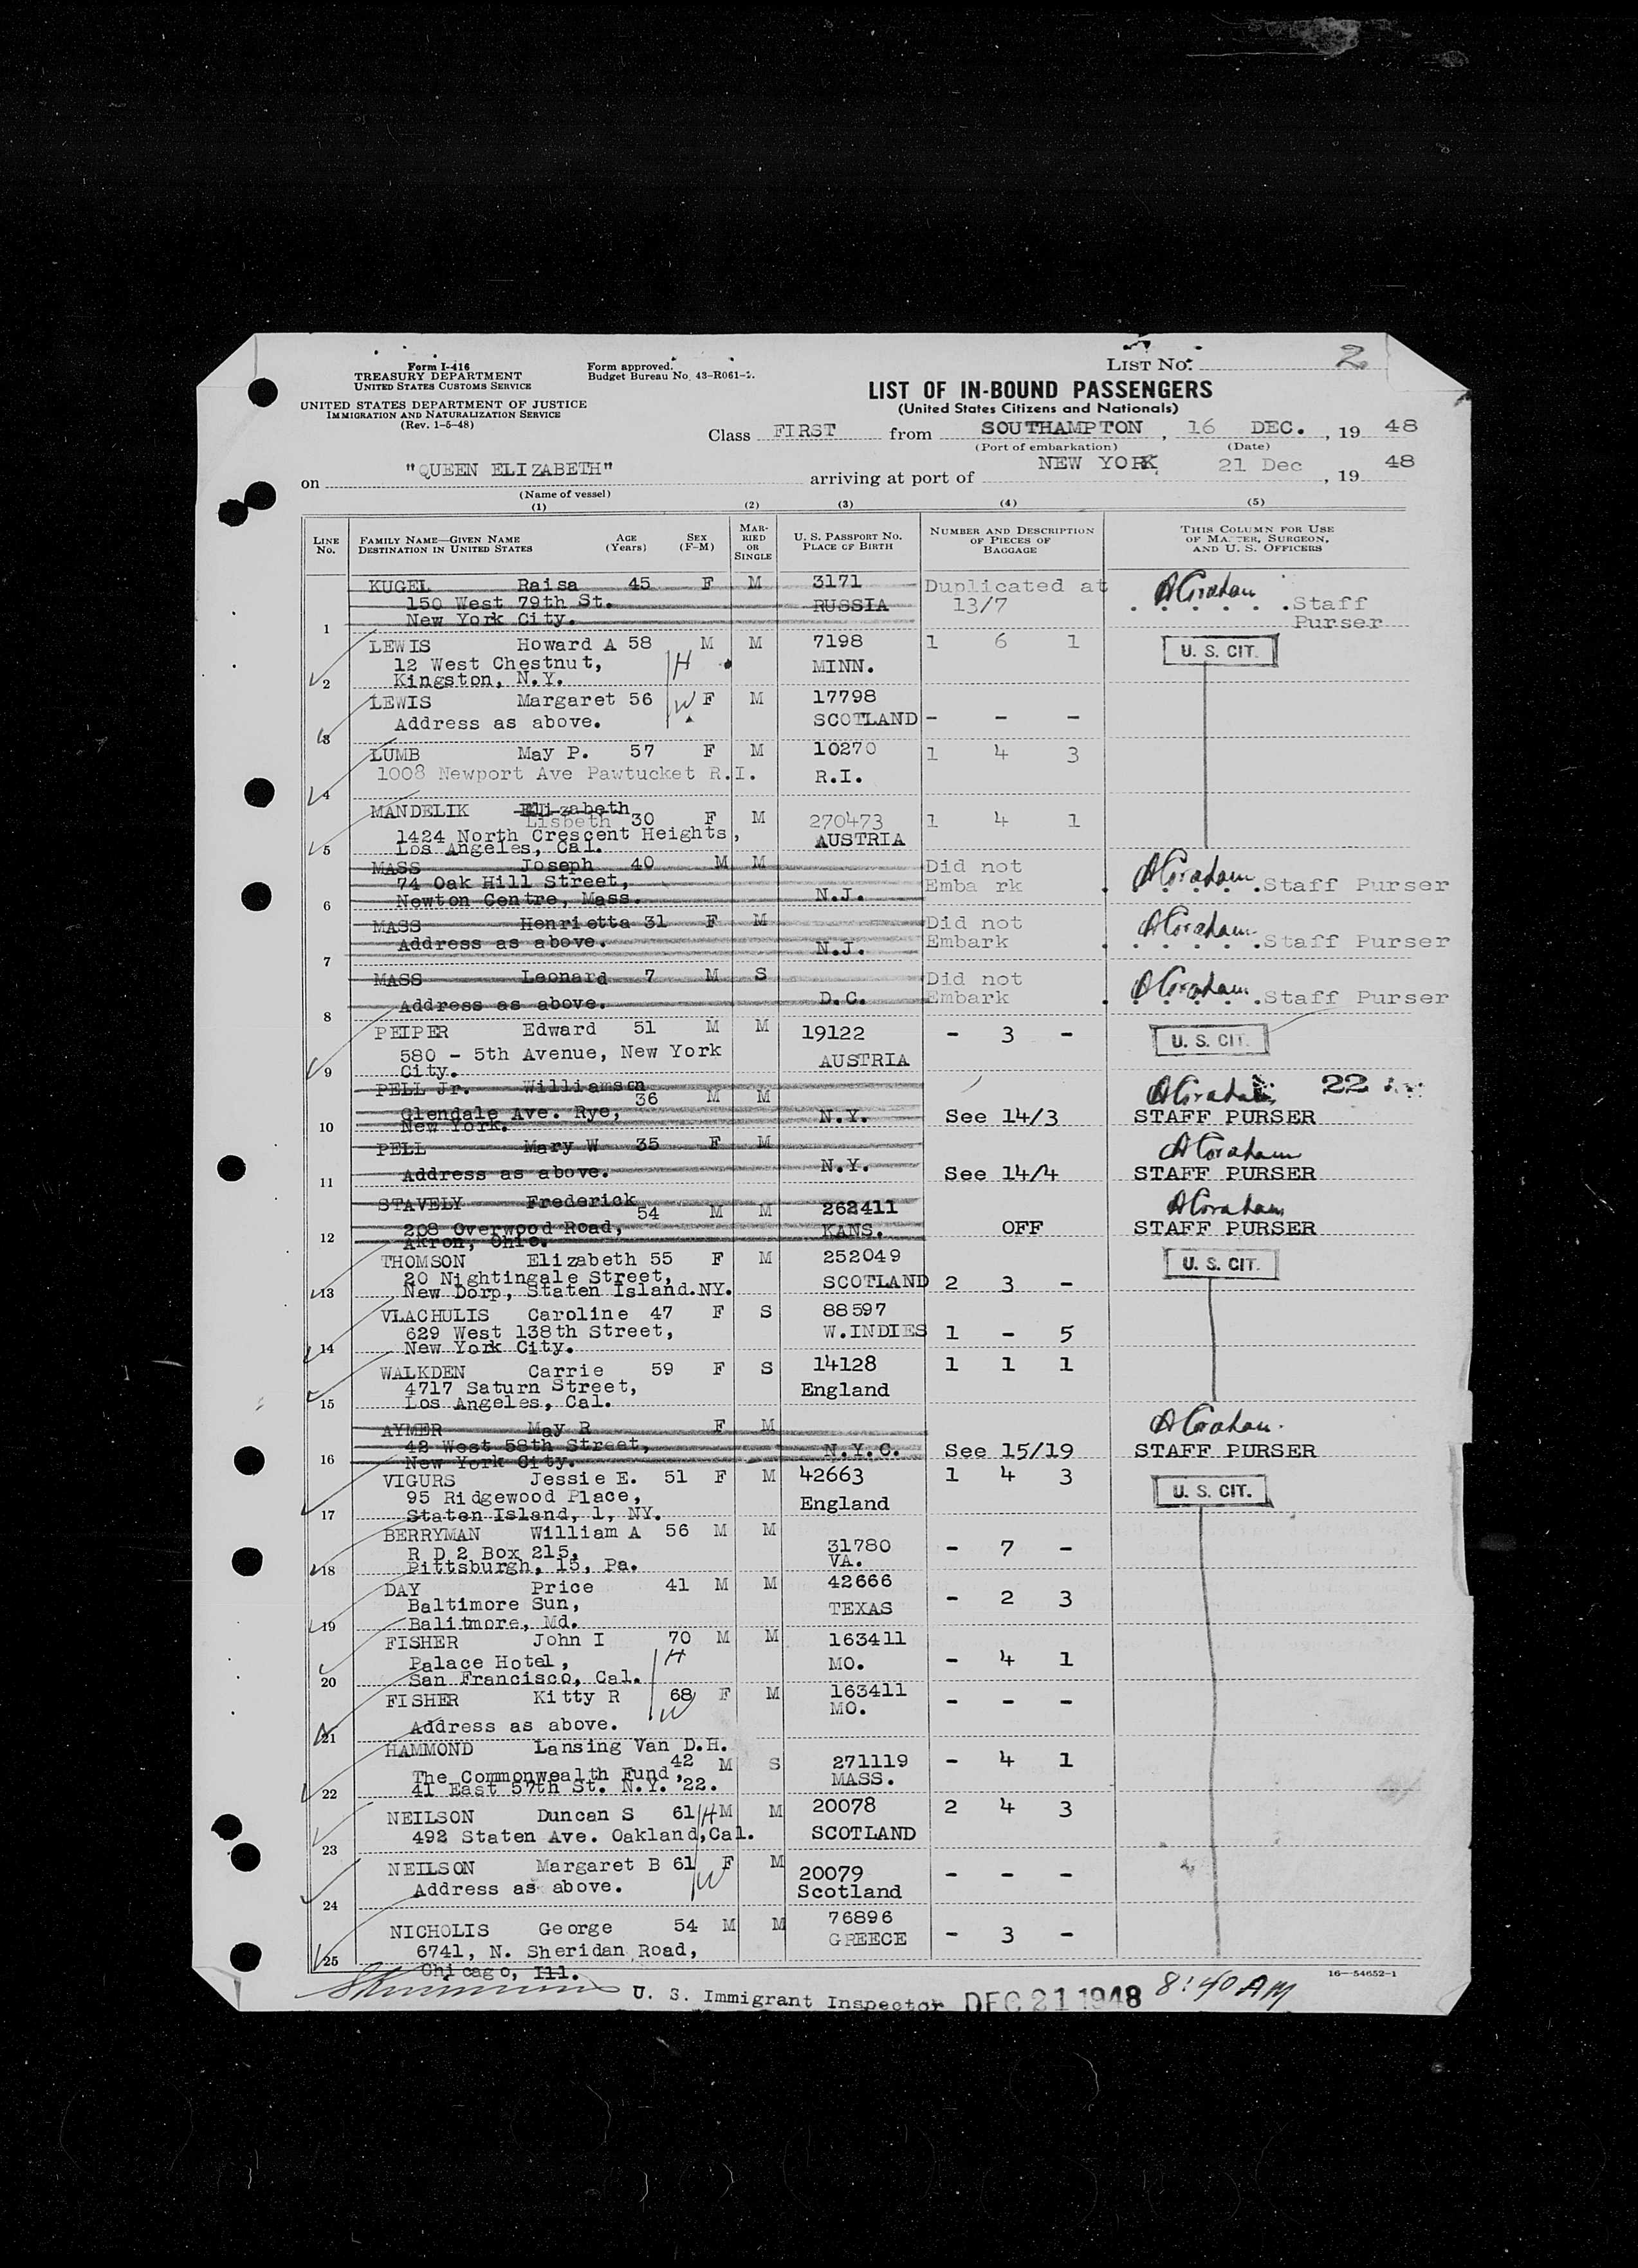 Form I-416
TREASURY DEPARTMENT
UNITED STATES CUSTOMS SERVICE
UNITED STATES DEPARTMENT OF JUSTICE
IMMIGRATION AND NATURALIZATION SERVICE
(Rev. 1-5-48)
Form approved.
Budget Bureau No. 43-R061-2.
LIST NO. 2
LIST OF IN-BOUND PASSENGERS
(United States Citizens and Nationals)
Class FIRST from SOUTHAMPTON, 16 DEC., 19 48
(Port of embarkation) (Date)
on "QUEEN ELIZABETH" arriving at port of NEW YORK, 21 Dec, 19 48
(Name of vessel)
(1) (2) (3) (4) (5)
LINE No. FAMILY NAME—GIVEN NAME DESTINATION IN UNITED STATES AGE (Years) SEX (F-M) MARRIED OR SINGLE U. S. PASSPORT NO. PLACE OF BIRTH NUMBER AND DESCRIPTION OF PIECES OF BAGGAGE THIS COLUMN FOR USE OF MASTER, SURGEON, AND U. S. OFFICERS
KUGEL Raisa 45 F M 3171 Duplicated at AGraham
150 West 79th St. RUSSIA 13/7 . . . . . .Staff
1 New York City. Purser
LEWIS Howard A 58 M M 7198 1 6 1 U. S. CIT.
12 West Chestnut, H MINN.
2 Kingston, N.Y.
LEWIS Margaret 56 W F M 17798
Address as above. SCOTLAND - - -
3
LUMB May P. 57 F M 10270 1 4 3
1008 Newport Ave Pawtucket R.I. R.I.
4
MANDELIK Elizabeth
Lisbeth 30 F M 270473 1 4 1
1424 North Crescent Heights, AUSTRIA
5 Los Angeles, Cal.
MASS Joseph 40 M M Did not AGraham
74 Oak Hill Street, Emba rk . . . . .Staff Purser
6 Newton Centre, Mass. N.J.
MASS Henrietta 31 F M Did not AGraham
Address as above. N.J. Embark . . . . .Staff Purser
7
MASS Leonard 7 M S Did not AGraham
Address as above. D.C. Embark . . . . .Staff Purser
8
PEIPER Edward 51 M M 19122 - 3 - U. S. CIT.
580 - 5th Avenue, New York AUSTRIA
9 City.
PELL Jr. Williamson 36 M M AGraham 22
Glendale Ave. Rye, N.Y. See 14/3 STAFF PURSER
10 New York.
PELL Mary W 35 F M AGraham
Address as above. N.Y. See 14/4 STAFF PURSER
11
STAVELY Frederick 54 M M 262411 AGraham
208 Overwood Road, KANS. OFF STAFF PURSER
12 Akron, Ohio.
THOMSON Elizabeth 55 F M 252049 U. S. CIT.
20 Nightingale Street, SCOTLAND 2 3 -
13 New Dorp, Staten Island.NY.
VLACHULIS Caroline 47 F S 88597
629 West 138th Street, W.INDIES 1 - 5
14 New York City.
WALKDEN Carrie 59 F S 14128 1 1 1
4717 Saturn Street, England
15 Los Angeles, Cal.
AYMER May R F M AGraham.
42 West 58th Street, N.Y.C. See 15/19 STAFF PURSER
16 New York City.
VIGURS Jessie E. 51 F M 42663 1 4 3 U. S. CIT.
95 Ridgewood Place, England
17 Staten Island, 1, NY.
BERRYMAN William A 56 M M
R D 2 Box 215, 31780 - 7 -
18 Pittsburgh, 15, Pa. VA.
DAY Price 41 M M 42666
Baltimore Sun, TEXAS - 2 3
19 Balitmore, Md.
FISHER John I 70 M M 163411
Palace Hotel, H MO. - 4 1
20 San Francisco, Cal.
FISHER Kitty R 68 F M 163411 - - -
W MO.
21 Address as above.
HAMMOND Lansing Van D.H. 42 M S 271119 - 4 1
The Commonwealth Fund, MASS.
22 41 East 57th St. N.Y. 22.
NEILSON Duncan S 61 H M M 20078 2 4 3
492 Staten Ave. Oakland,Cal. SCOTLAND
23
NEILSON Margaret B 61 W F M 20079 - - -
Address as above. Scotland
24
NICHOLIS George 54 M M 76896
6741, N. Sheridan Road, GREECE - 3 -
25 Chicago, Ill.
16-54652-1
U. S. Immigrant Inspector DEC 21 1948 8:40 AM